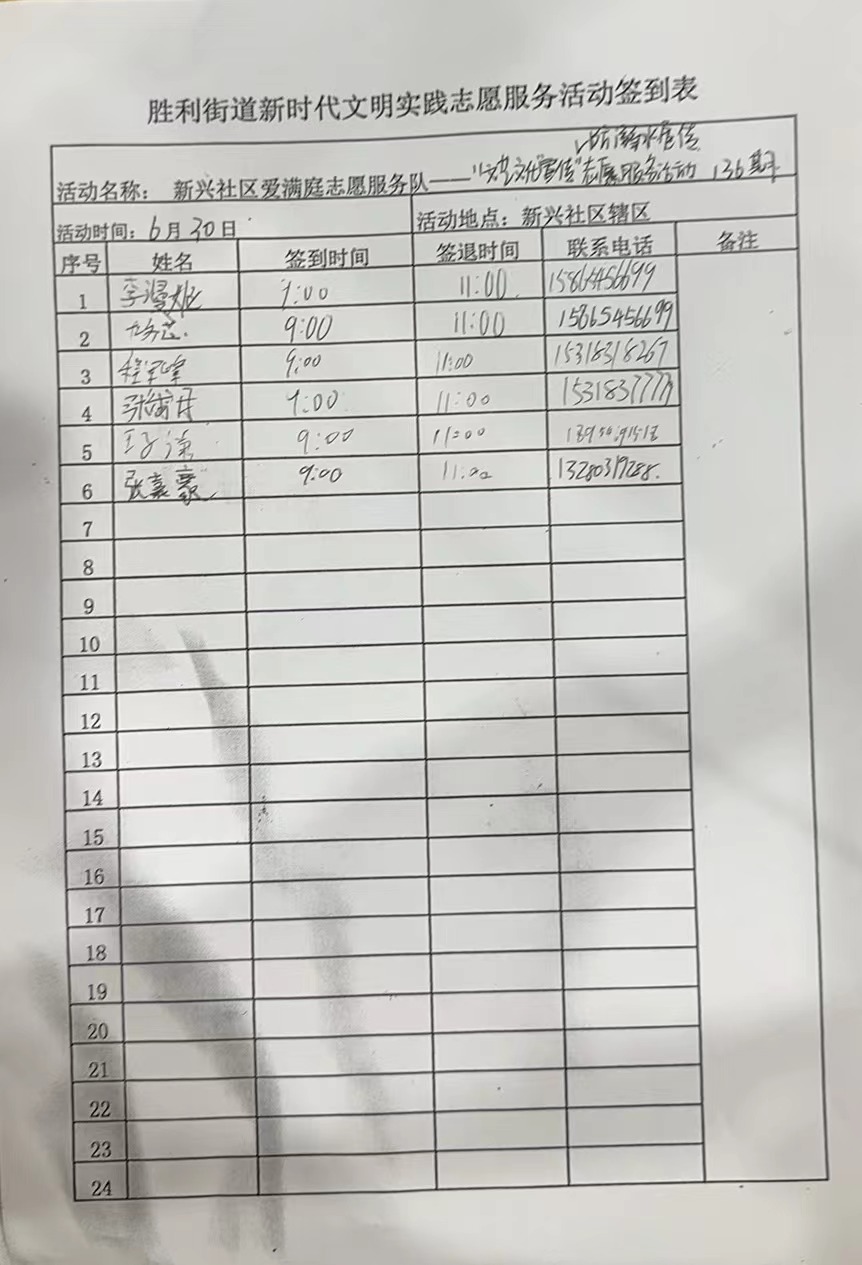 胜利街道新时代文明实践志愿服务活动签到表
防溺水宣传
活动名称： 新兴社区爱满庭志愿服务队——“文化宣传”志愿服务活动 136期
活动时间：6月30日 活动地点：新兴社区辖区
序号 姓名 签到时间 签退时间 联系电话 备注
1 李 9:00 11:00 15865456699
2 9:00 11:00 15865456699
3 程军峰 9:00 11:00 15318318267
4 张 9:00 11:00 1531837777
5 王子 9:00 11:00
6 张嘉懿 9:00 11:00 13280319288.
7
8
9
10
11
12
13
14
15
16
17
18
19
20
21
22
23
24